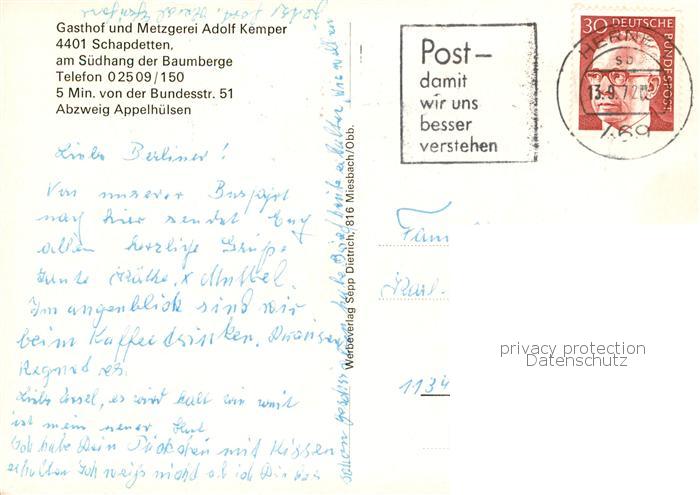 Gasthof und Metzgerei Adolf Kemper
4401 Schapdetten,
am Südhang der Baumberge
Telefon 02509/150
5 Min. von der Bundesstr. 51
Abzweig Appelhülsen
Post –
damit
wir uns
besser
verstehen
30 DEUTSCHE
BUNDESPOST
HERNE
sb
13.9.72
469
Liebe Berliner!
Von unserer Busfahrt
nach hier sendet Euch
allen herzliche Grüße
Tante Käthe
Im Augenblick sind wir
beim Kaffeetrinken. Draussen
Regnet es.
es wird kalt
ist mein neuer
Ich habe Dein Päckchen mit Kissen
erhalten Ich weiß nicht ob ich Dir
schon
Werbeverlag Sepp Dietrich, 816 Miesbach/Obb.
Fam
Karl-
1134
privacy protection
Datenschutz